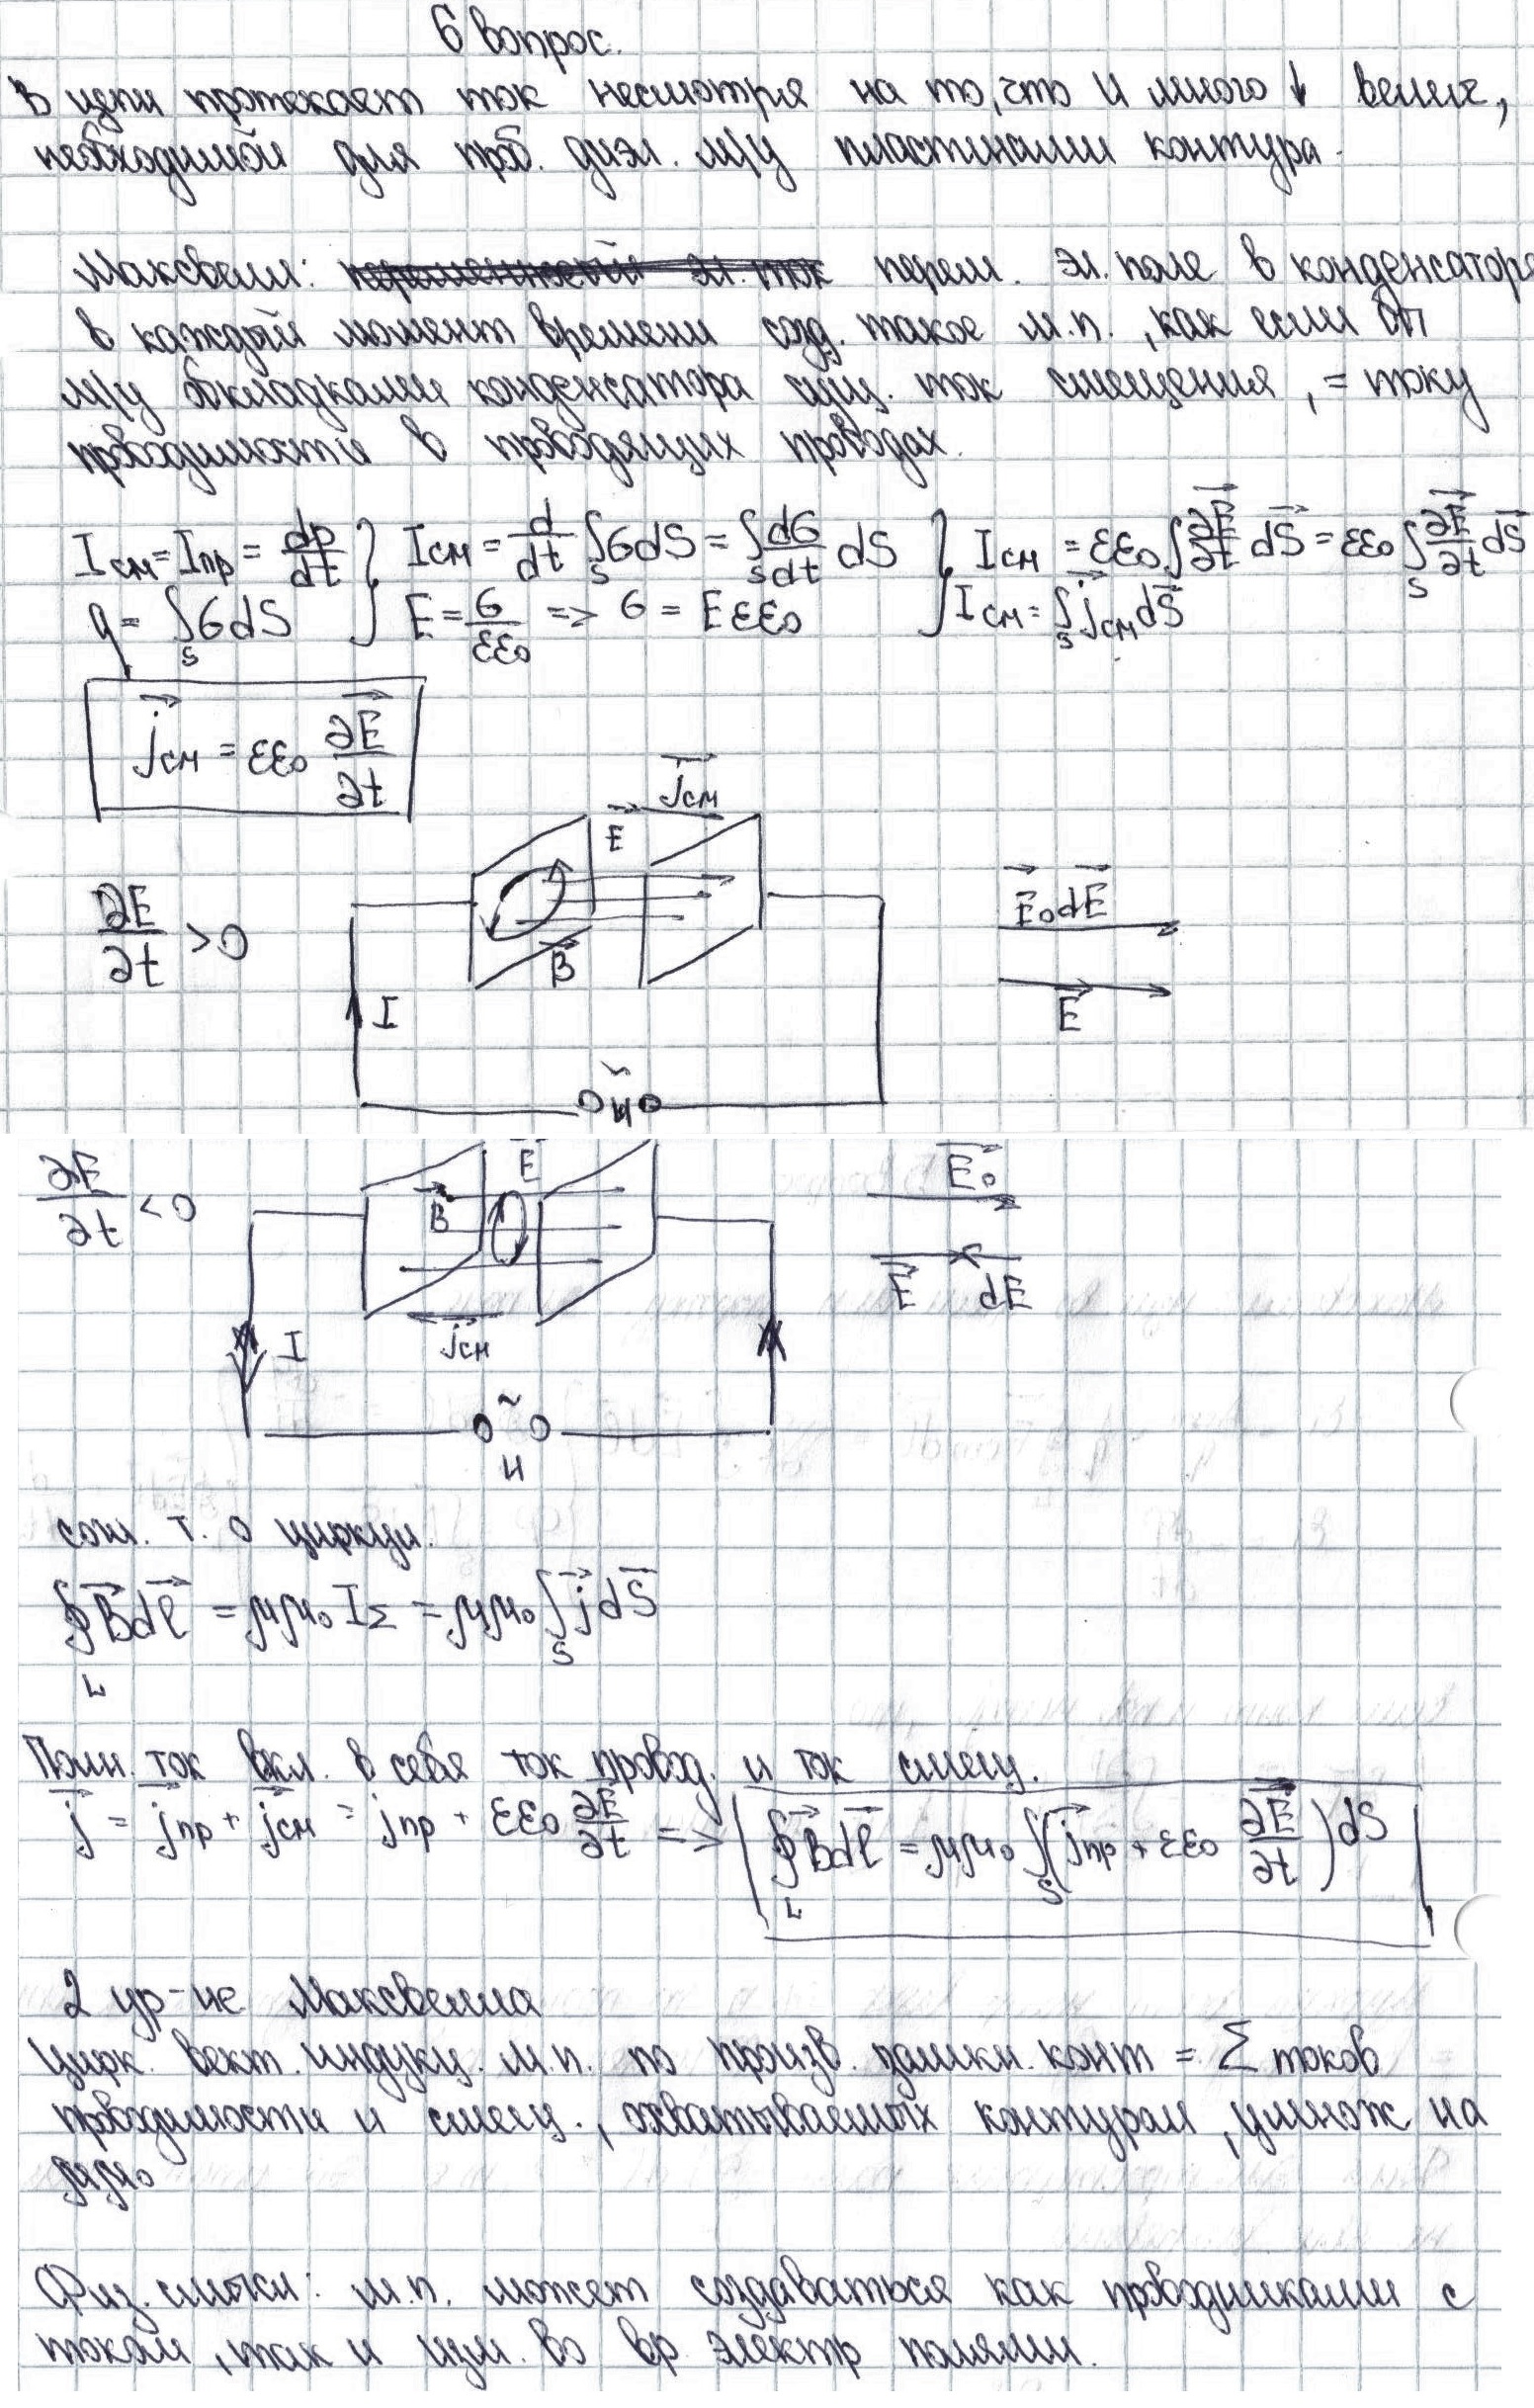 6 вопрос.
В цепи протекает ток несмотря на то, что U много ↓ велич,
необходимой для проб. диэл. м/у пластинами контура.
Максвелл: переменный эл. ток перем. эл. поле в конденсаторе
в каждый момент времени созд. такое м.п., как если бы
м/у обкладками конденсатора сущ. ток смещения, = току
проводимости в проводящих проводах.
Iсм = Iпр = dp/dt } Iсм = d/dt ∫S бdS = ∫S dб/dt dS } Iсм = εε₀ ∫ ∂E/∂t dS = εε₀ ∫S ∂E/∂t dS
q = ∫S бdS } E = б/εε₀ => б = Eεε₀ } Iсм = ∫S jсм dS
jсм = εε₀ ∂E/∂t
jсм
E
∂E/∂t > 0
B
I
~
U
E₀ dE
E
∂E/∂t < 0
E
B
jсм
I
~
U
E₀
E dE
согл. т. о циркул.
∮L Bdl = μμ₀ IΣ = μμ₀ ∫S jdS
Полн. ток вкл. в себя ток провод. и ток смещ.
j = jпр + jсм = jпр + εε₀ ∂E/∂t => ∮L Bdl = μμ₀ ∫S (jпр + εε₀ ∂E/∂t) dS
2 ур-ие Максвелла
Цирк. вект. индукц. м.п. по произв. замкн. конт = Σ токов
проводимости и смещ., охватываемых контуром, умнож на
μμ₀
Физ. смысл: м.п. может создаваться как проводниками с
током, так и изм. во вр. электр полями.